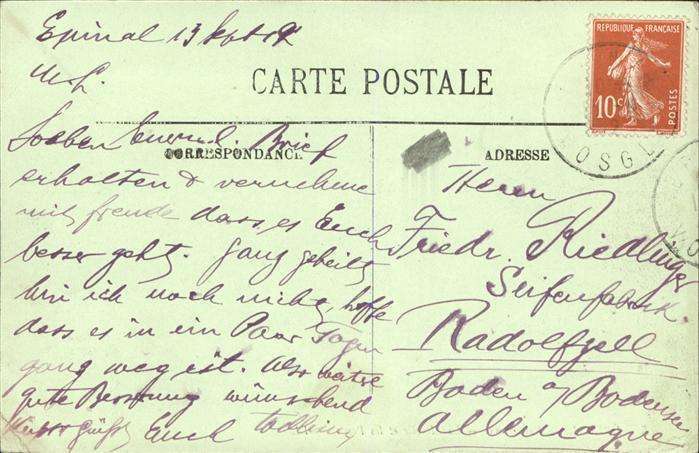 Epinal 13 Sept
M. L.
CARTE POSTALE
RÉPUBLIQUE FRANÇAISE
10c
POSTES
OSG
CORRESPONDANCE
Soeben Brief
erhalten & vernehme
mit freude dass es Euch
besser geht. Ganz geheilt
bin ich noch nicht, hoffe
dass es in ein Paar Tagen
ganz weg ist. Also weitere
gute Besserung wünschend
grüsst Euch
ADRESSE
Herrn
Friedr. Riedlinger
Seifenfabrik
Radolfzell
Baden a/ Bodensee
Allemagne